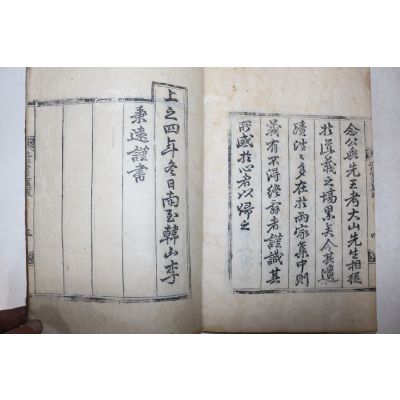 念公與先王考大山先生相從
於道義之場累矣今其遺
蹟徃〻多在於兩家集中則
義有不得終辭者謹識其
所感於心者以歸之
上之四年冬日南至韓山李
秉遠謹書